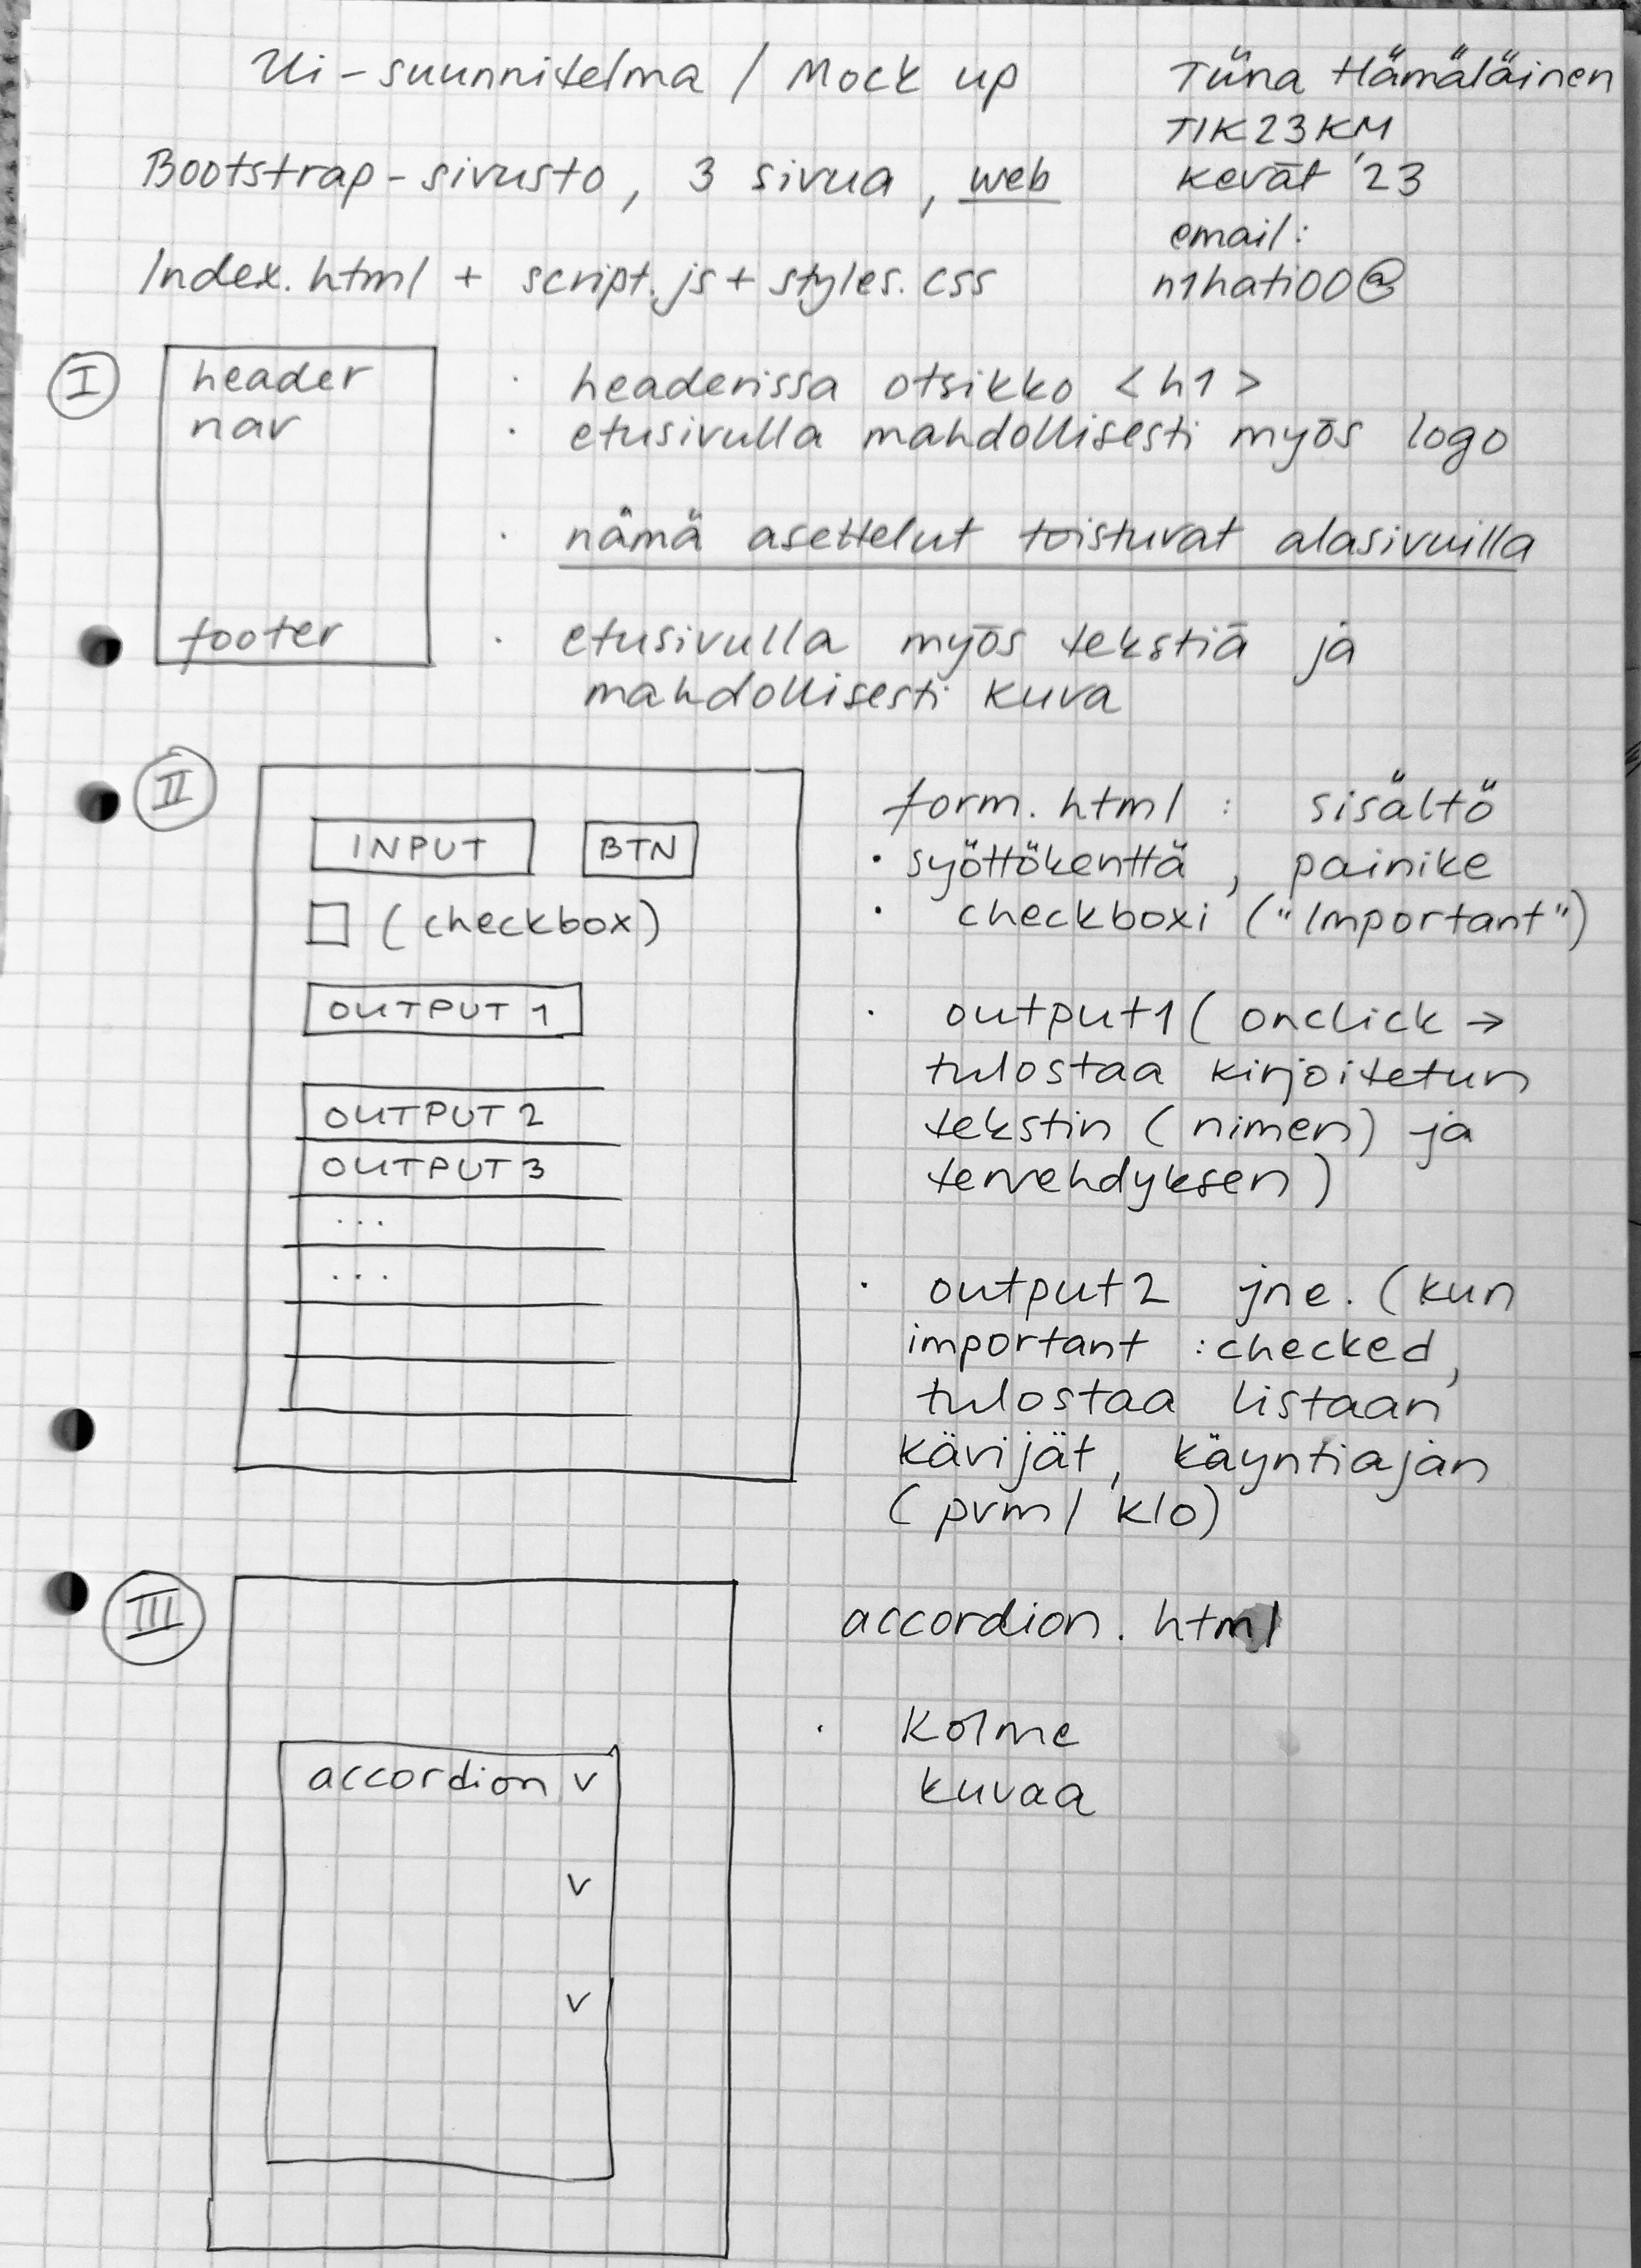 Ui-suunnitelma / Mock up
Tiina Hämäläinen
TIK23KM
kevät '23
email:
n1hati00@
Bootstrap-sivusto, 3 sivua, web
Index.html + script.js + styles.css
I
header
nav
footer
· headerissa otsikko <h1>
· etusivulla mahdollisesti myös logo
· nämä asettelut toistuvat alasivuilla
· etusivulla myös tekstiä ja
mahdollisesti kuva
II
INPUT BTN
(checkbox)
OUTPUT 1
OUTPUT 2
OUTPUT 3
...
...
form.html : sisältö
· syöttökenttä, painike
· checkboxi ("Important")
· output1 (onclick →
tulostaa kirjoitetun
tekstin (nimen) ja
tervehdyksen)
· output2 jne. (kun
important :checked,
tulostaa listaan
kävijät, käyntiajan
(pvm/ klo)
III
accordion v
v
v
accordion.html
· Kolme
kuvaa